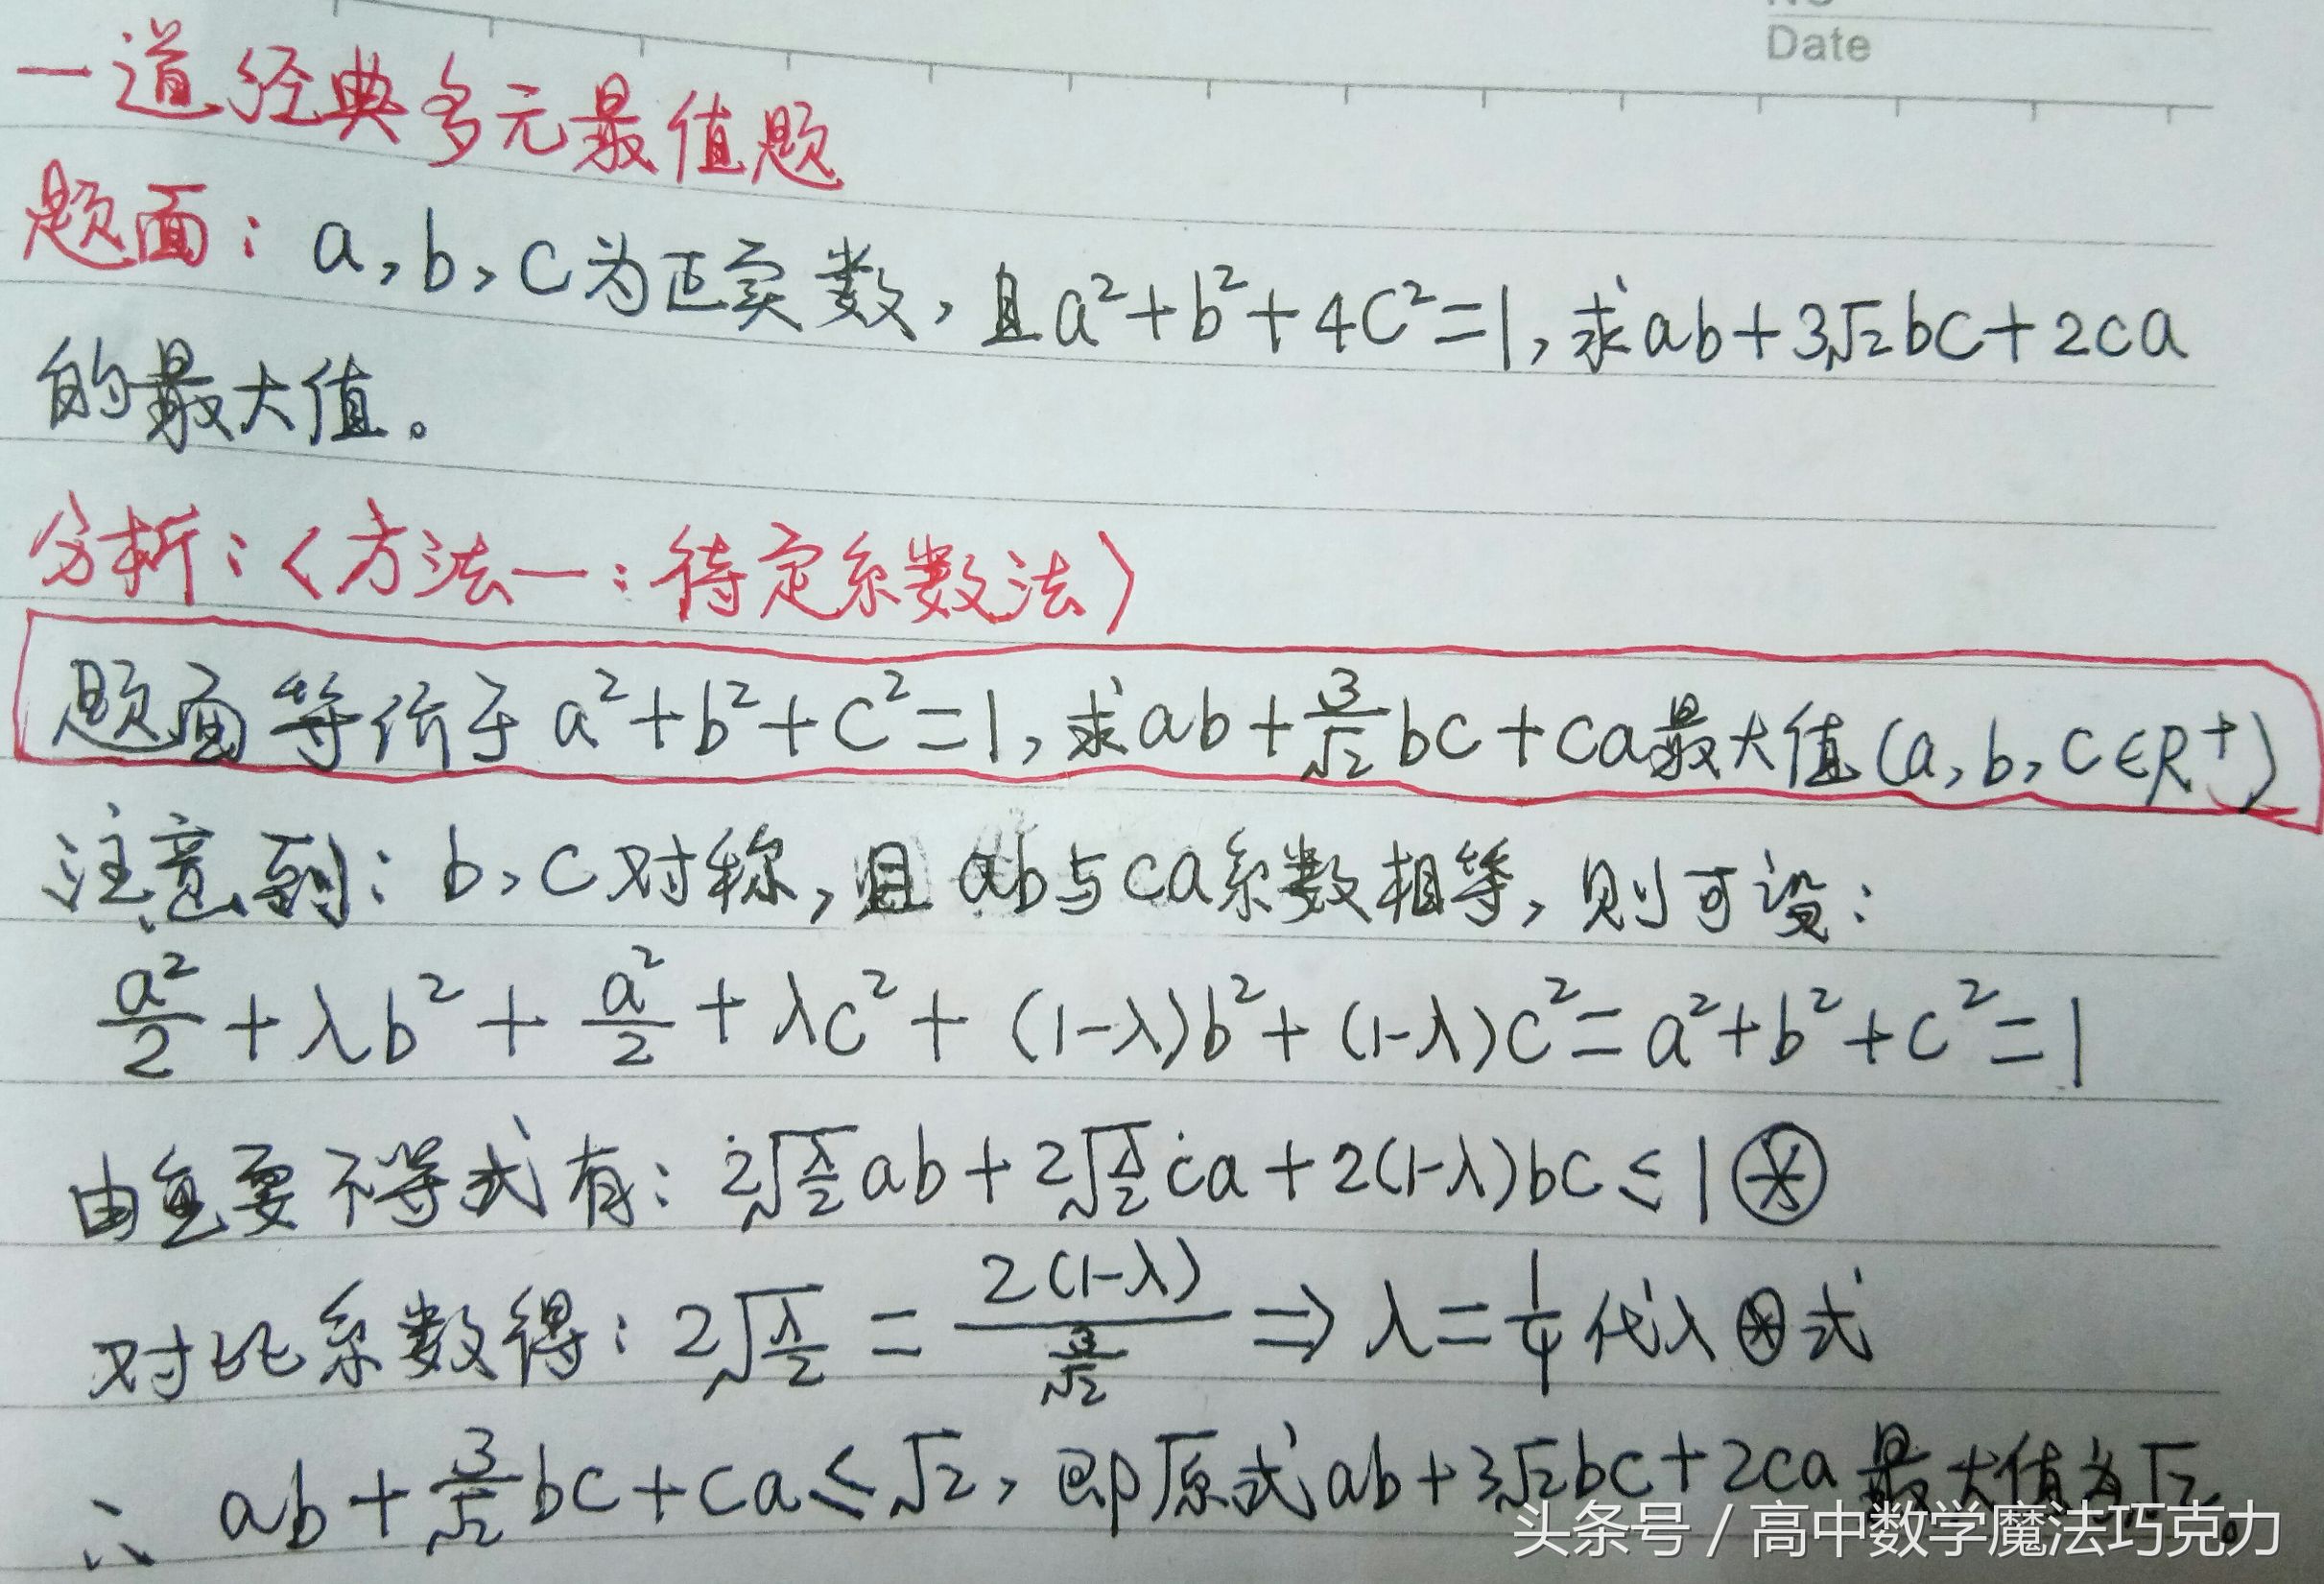 Date
一道经典多元最值题
题面：a,b,c为正实数,且a²+b²+4c²=1,求ab+3√2bc+2ca
的最大值。
分析：〈方法一：待定系数法〉
题面等价于a²+b²+c²=1,求ab+3/√2 bc+ca最大值(a,b,c∈R⁺)
注意到：b,c对称,且ab与ca系数相等,则可设：
a²/2+λb²+a²/2+λc²+(1-λ)b²+(1-λ)c²=a²+b²+c²=1
由重要不等式有：2√(λ/2)ab+2√(λ/2)ca+2(1-λ)bc≤1⊛
对比系数得：2√(λ/2)=2(1-λ)/(3/√2)⇒λ=1/4代入⊛式
∴ab+3/√2 bc+ca≤√2,即原式ab+3√2bc+2ca最大值为√2。
头条号/高中数学魔法巧克力